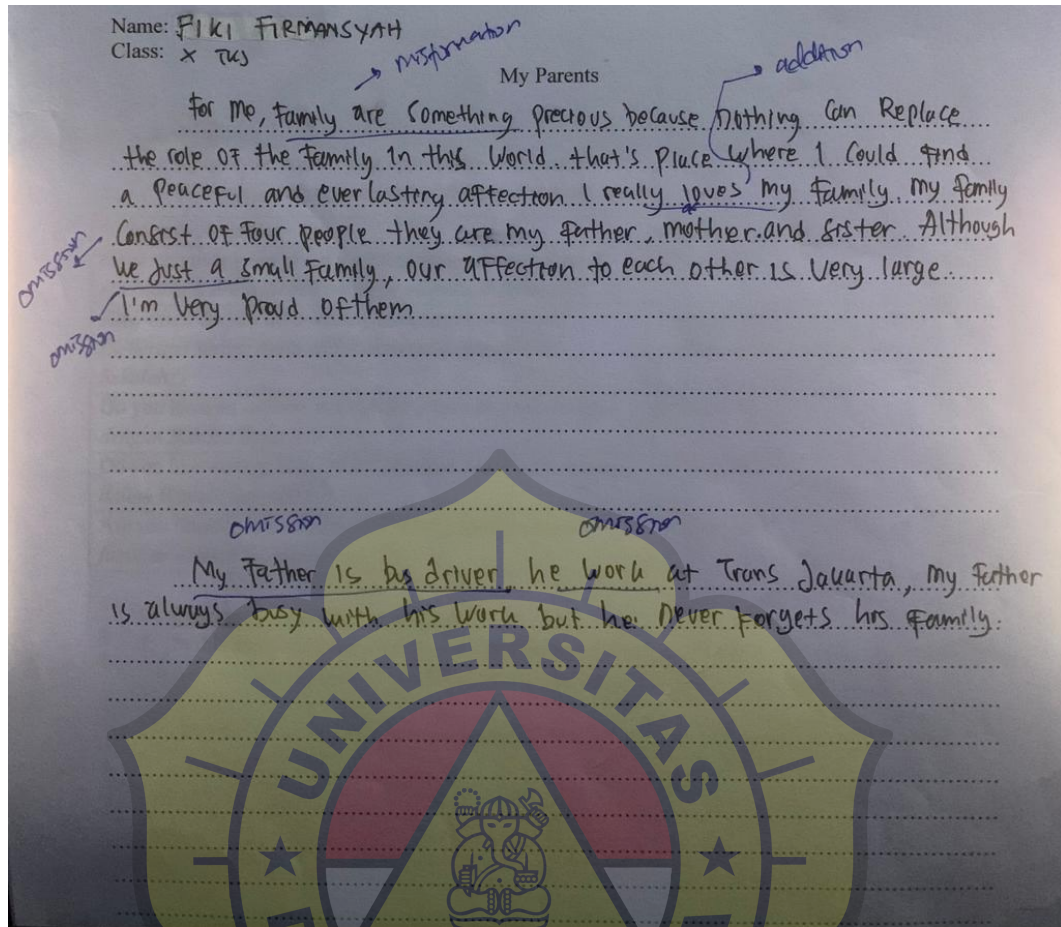 Name: FIKI FIRMANSYAH
Class: X TKJ
misformation
addition
My Parents
For me, family are something precious because nothing can Replace
the role of the family in this world. that's place where I could find
a peaceful and everlasting affection I really loves my family. my family
Consist of four people they are my father, mother and sister. Although
we just a small family, our affection to each other is very large
I'm very proud of them
omission
omission
omission
omission
My Father is bus driver, he work at Trans Jakarta, my father
is always busy with his work but he never forgets his family.
UNIVERSITAS